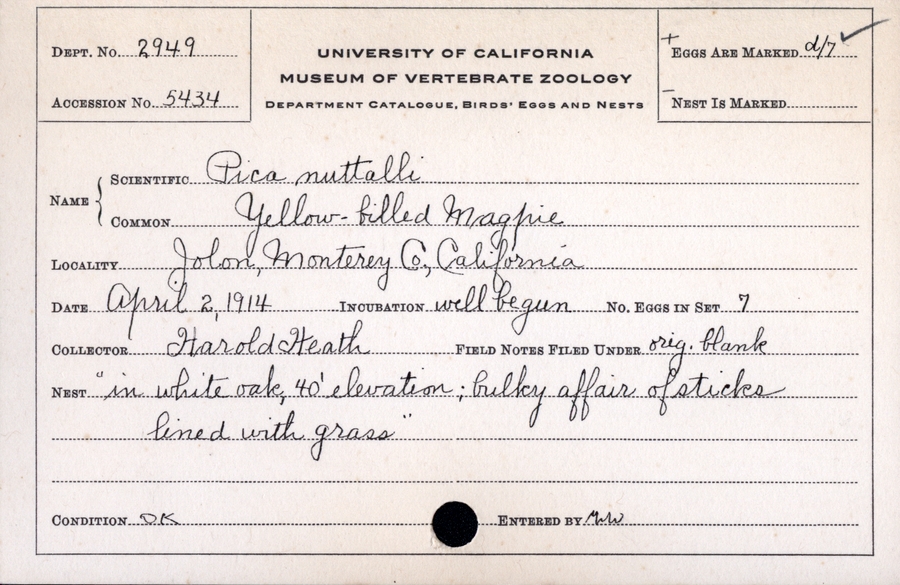 DEPT. No. 2949
ACCESSION No. 5434
UNIVERSITY OF CALIFORNIA
MUSEUM OF VERTEBRATE ZOOLOGY
DEPARTMENT CATALOGUE, BIRDS' EGGS AND NESTS
+ EGGS ARE MARKED d/7 ✓
- NEST IS MARKED
NAME { SCIENTIFIC Pica nuttalli
COMMON Yellow-billed Magpie
LOCALITY Jolon, Monterey Co., California
DATE April 2, 1914 INCUBATION well begun NO. EGGS IN SET 7
COLLECTOR Harold Heath FIELD NOTES FILED UNDER orig. blank
NEST "in white oak, 40' elevation; bulky affair of sticks
lined with grass"
CONDITION OK ENTERED BY